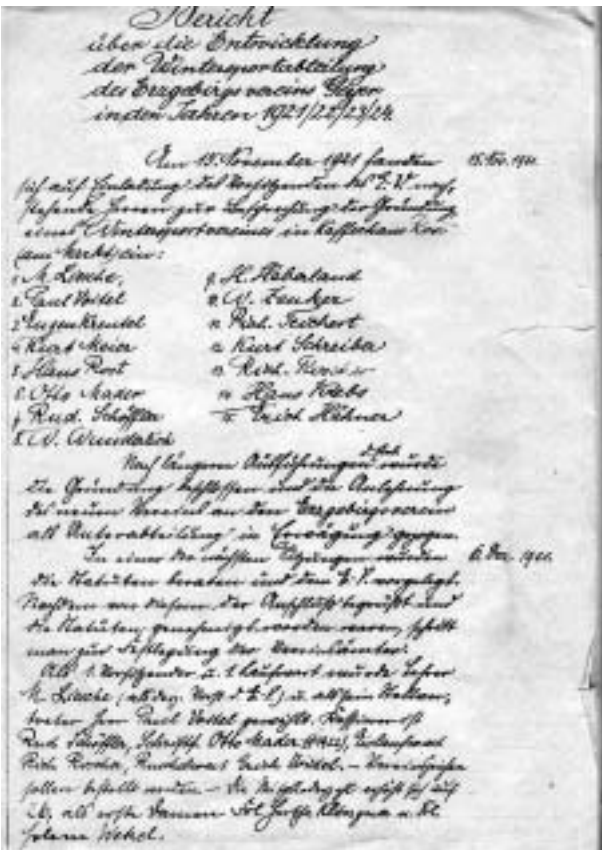 Bericht
über die Entwicklung
der Wintersportabteilung
des Erzgebirgsvereins Geyer
in den Jahren 1921/22/23/24
Am 15. November 1921 fanden 15. Nov. 1921.
sich auf Einladung des Vorsitzenden des E.V. nach-
stehende Herren zur Besprechung der Gründung
eines Wintersportvereines in Kaffeehaus
am Markt ein:
1. M. Liesche,
2. Paul Voitel
3. Eugen Kreutel
4. Kurt Meier
5. Hans Root
6. Otto Mader
7. Rud. Schöffler
8. W. Wunderlich
9. H. Haberland
10. W. Zenker
11. Rich. Teichert
12. Kurt Schreiber
13. Rich.
14. Hans Krebs
15. Erich Hähner
Nach längeren Ausführungen wurde
die Gründung beschlossen und die Anlehnung
des neuen Vereins an den Erzgebirgsverein
als Unterabteilung in Erwägung gezogen.
In einer der nächsten Sitzungen wurden 6. Dez. 1921.
die Statuten beraten und dem E.V. vorgelegt.
Nachdem von diesem der Anschluß begrüßt und
die Statuten genehmigt worden waren, schritt
man zur Festlegung der Vereinsämter.
Als 1. Vorsitzender u. 1. Laufwart wurde Lehrer
M. Liesche u. als sein Stellver-
treter Herr Paul Voitel gewählt. Kassierer ist
Rud. Schöffler, Schriftf. Otto Mader
Rich. Erich Voitel. – Vereinszeichen
sollen bestellt werden – die Mitgliederzahl erhöht sich auf
als erste Damen Frl. u. Frl.
Helene Wetzel.